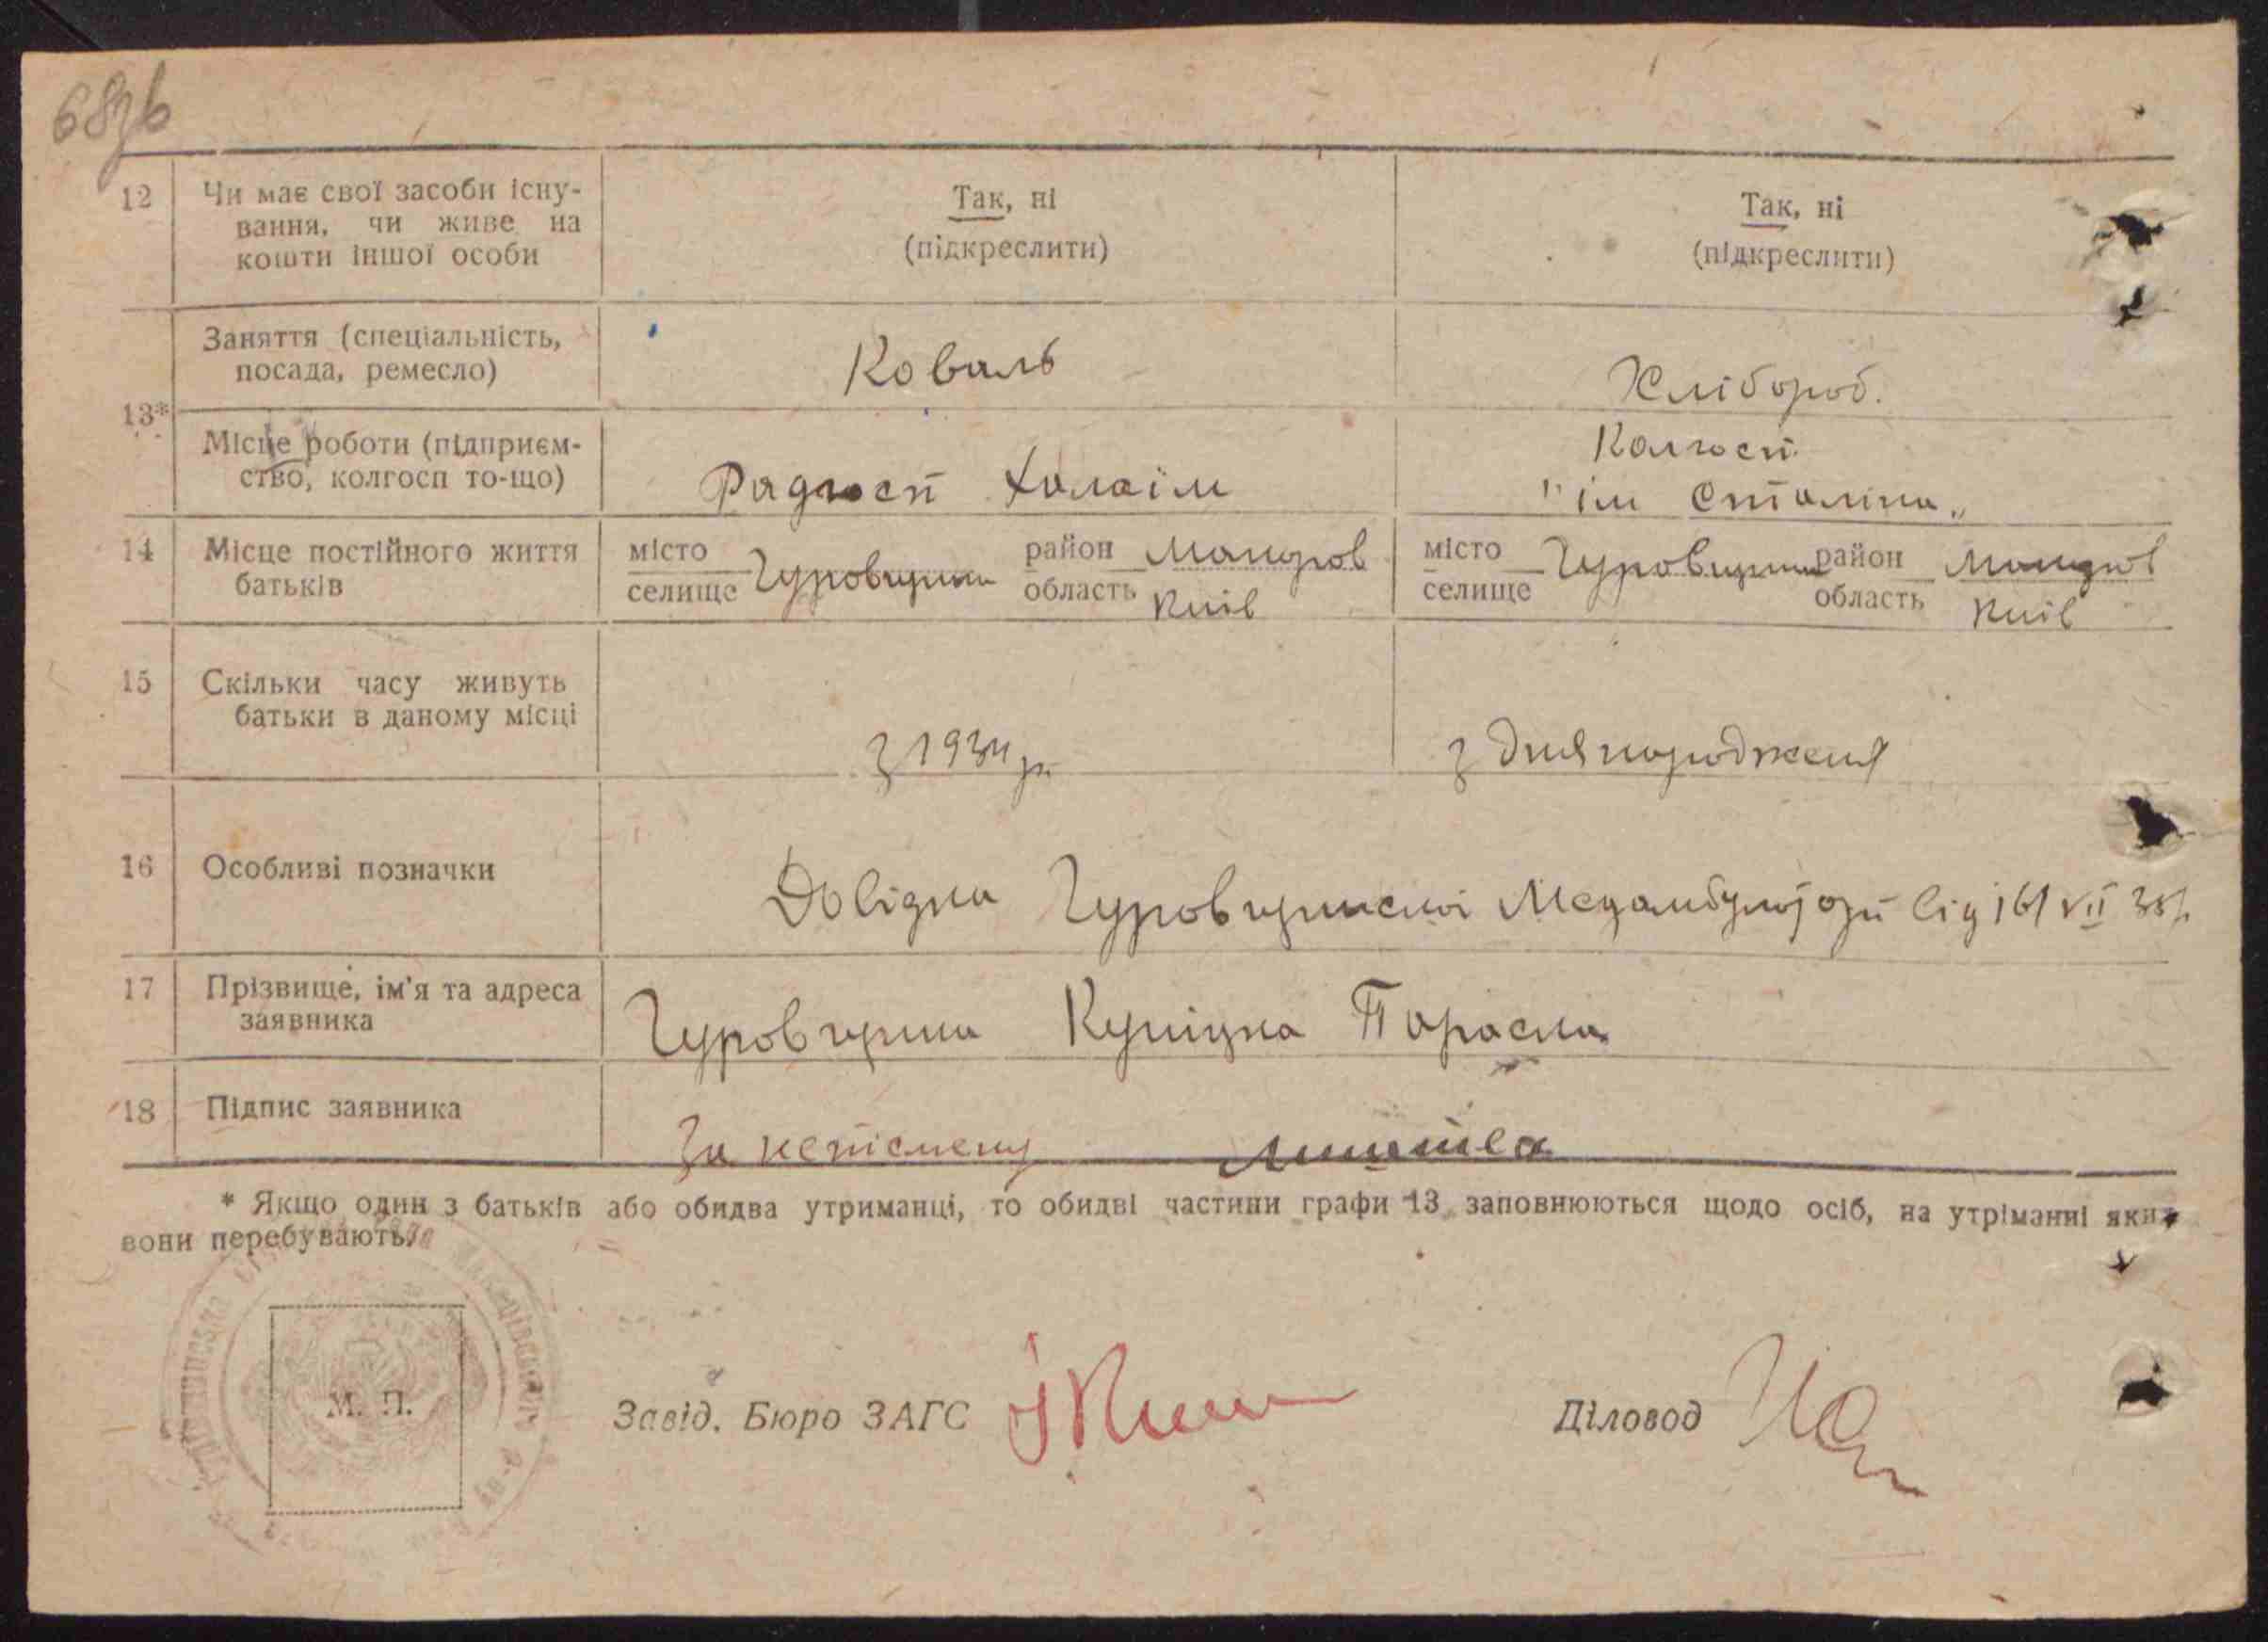 12 Чи має свої засоби існу-
вання, чи живе на
кошти іншої особи
Так, ні
(підкреслити)
Так, ні
(підкреслити)
13*
Заняття (спеціальність,
посада, ремесло)
Коваль
Хлібороб.
Місце роботи (підприєм-
ство, колгосп то-що)
Радгосп
Колгосп
"ім Сталіна"
14 Місце постійного життя
батьків
місто
селище Гуровщина
район
область Київ
місто
селище Гуровщина
район
область Київ
15 Скільки часу живуть
батьки в даному місці
З 1934 р.
з дня породженя
16 Особливі позначки
Довідка Гуровщинської від 16/VII
17 Прізвище, ім'я та адреса
заявника
Гуровщина Параска
18 Підпис заявника
За неписмену
* Якщо один з батьків або обидва утриманці, то обидві частини графи 13 заповнюються щодо осіб, на утріманні яких
вони перебувають.
М. П.
Завід. Бюро ЗАГС
Діловод